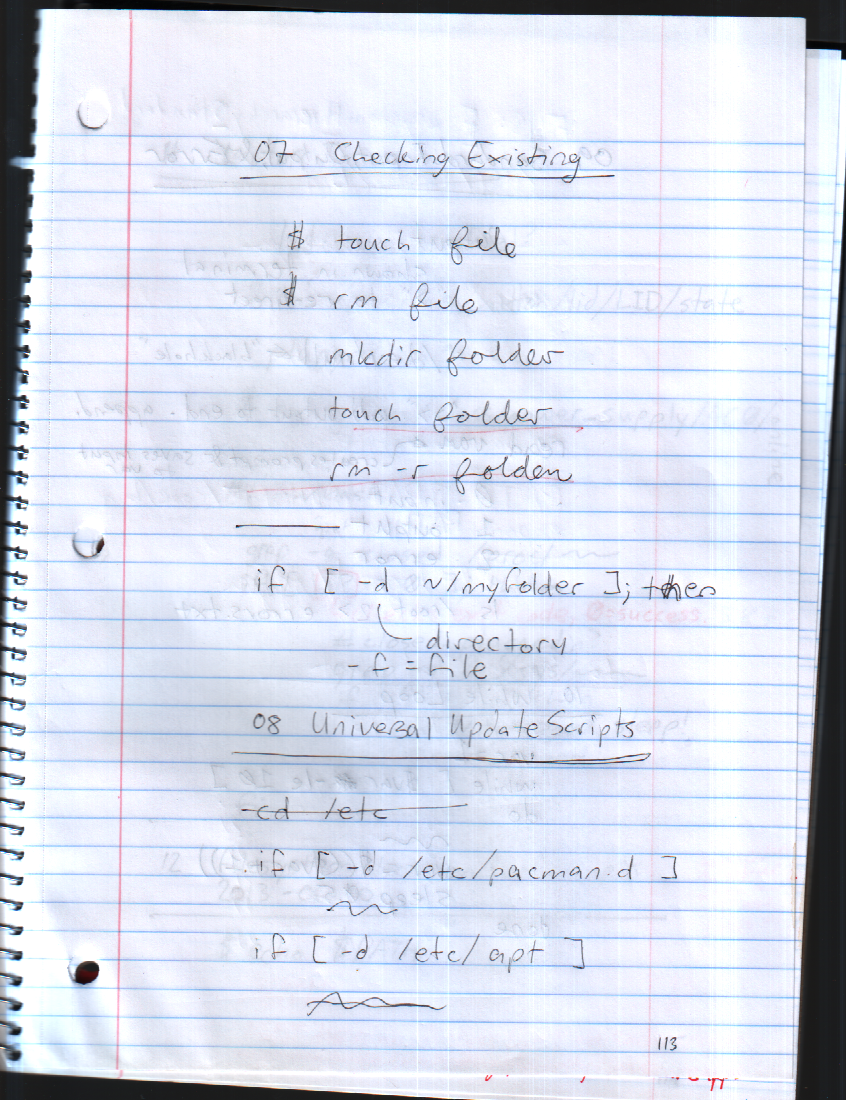 07 Checking Existing
$ touch file
$ rm file
mkdir folder
touch folder
rm -r folder
if [ -d ~/myfolder ]; then
directory
- f = file
08 Universal Update Scripts
cd /etc
if [ -d /etc/pacman.d ]
if [ -d /etc/apt ]
113